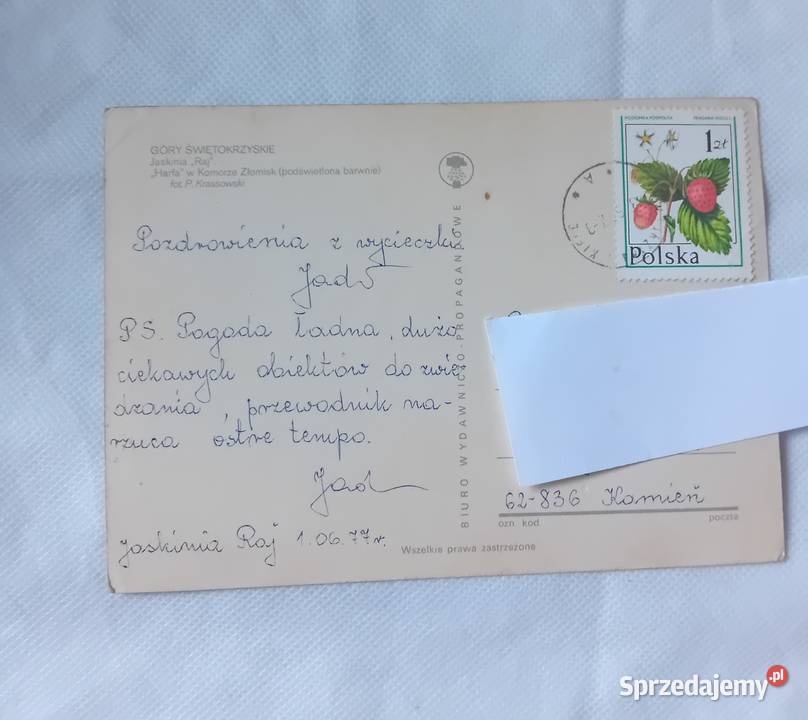 GÓRY ŚWIĘTOKRZYSKIE
Jaskinia „Raj”
„Harfa” w Komorze Złomisk (podświetlona barwnie)
fot. P. Krassowski
Pozdrowienia z wycieczki
Jad
PS. Pogoda ładna, dużo
ciekawych obiektów do zwie
dzania, przewodnik na-
rzuca ostre tempo.
Jad
Jaskinia Raj 1.06.77r.
BIURO WYDAWNICZO-PROPAGANDOWE
Wszelkie prawa zastrzeżone
POZIOMKA POSPOLITA
FRAGARIA VESCA L.
1 zł
Polska
62-836 Kamień
ozn. kod.
poczta
Sprzedajemy.pl